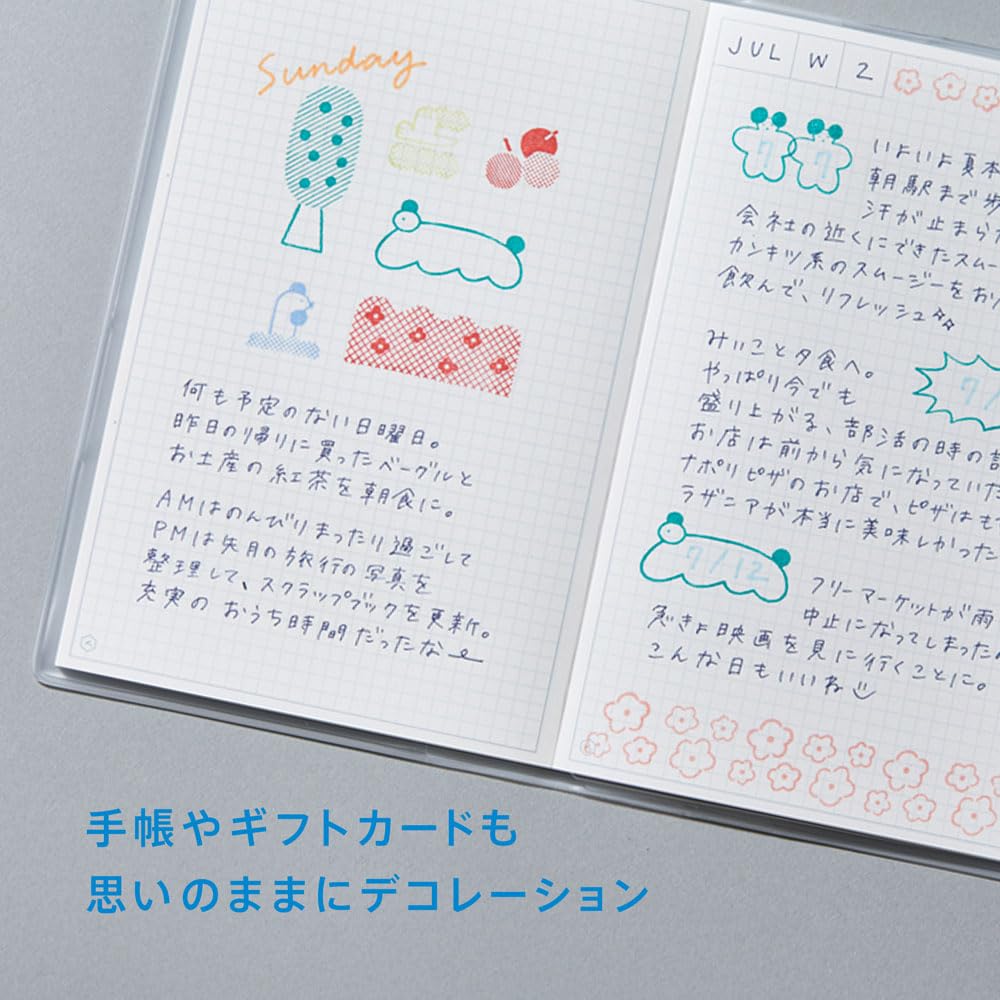 Sunday
何も予定のない日曜日。
昨日の帰りに買ったベーグルと
お土産の紅茶を朝食に。
AMはのんびりまったり過ごして
PMは先月の旅行の写真を
整理して、スクラップブックを更新。
充実の おうち時間だったな
JUL W 2
7 7
いよいよ夏本
朝駅まで歩
汗が止まら
会社の近くにできたスムー
カンキツ系のスムージーをお
飲んで、リフレッシュ
みいこと夕食へ。
やっぱり今でも
7/
盛り上がる、部活の時の
お店は前から気になっていた
ナポリピザのお店で、ピザはも
ラザニアが本当に美味しかった
7/12
フリーマーケットが雨
中止になってしまった
急きょ映画を見に行くことに。
こんな日もいいね
手帳やギフトカードも
思いのままにデコレーション